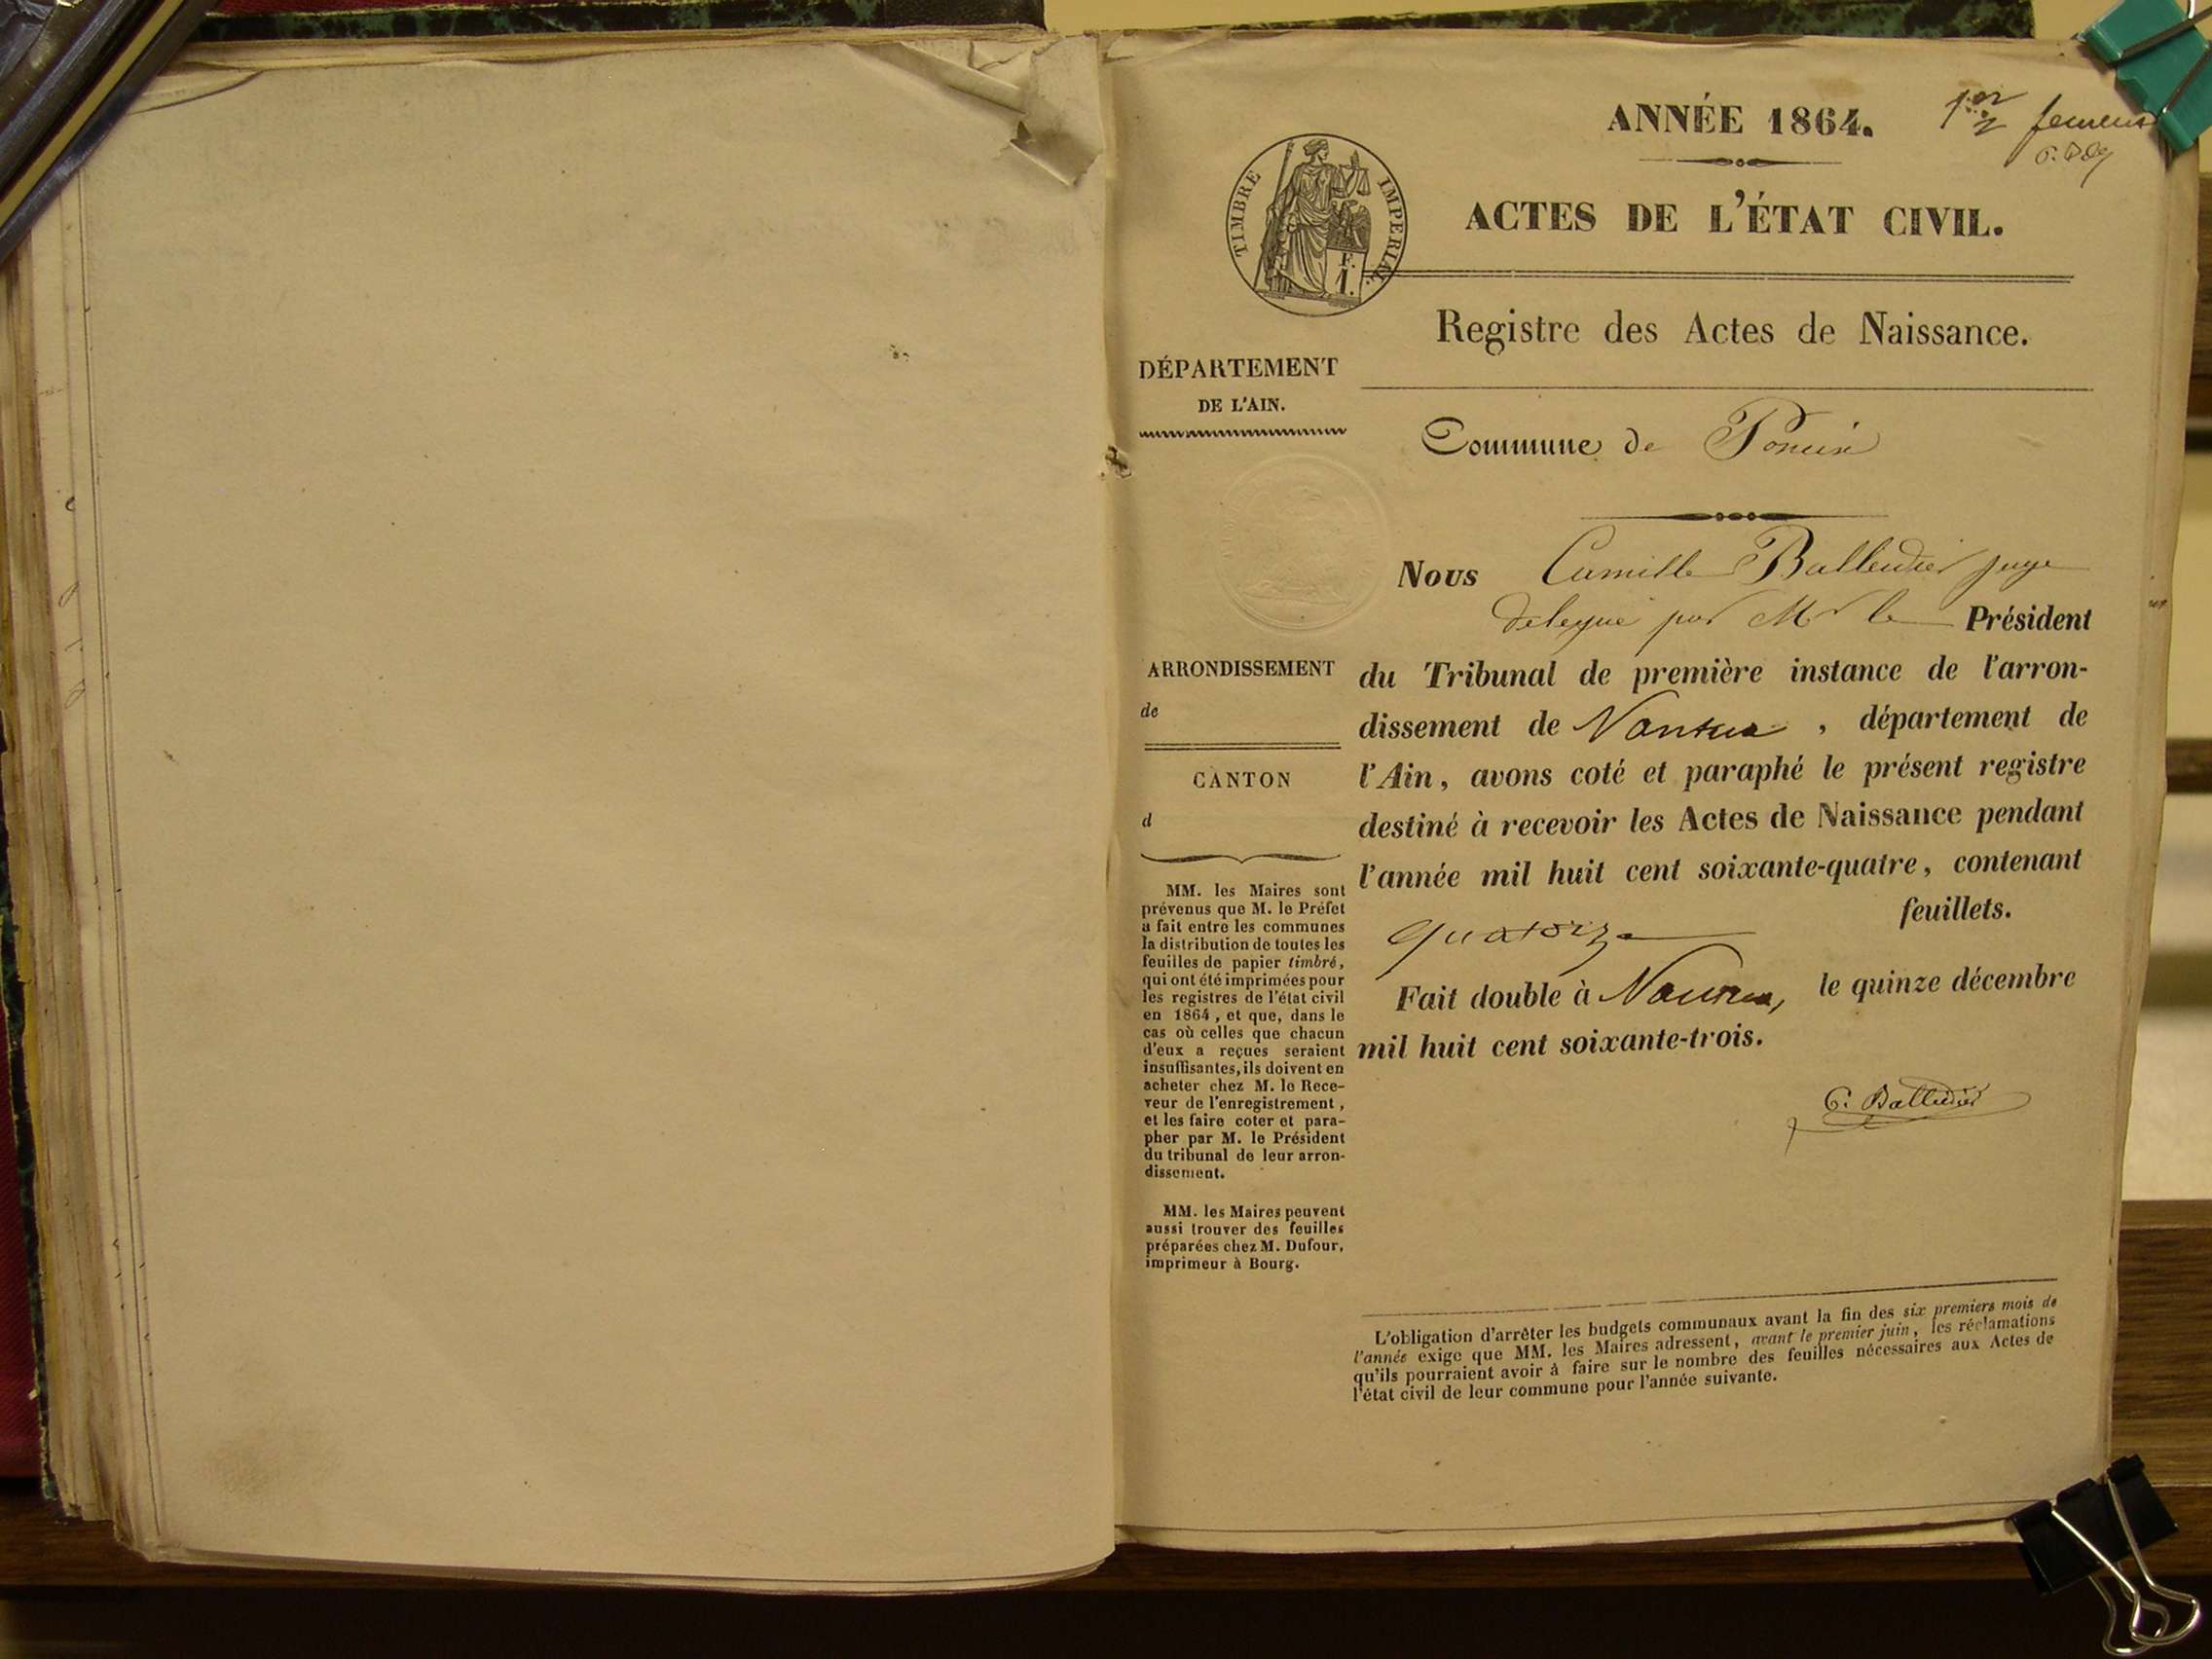 ANNÉE 1864.
1er
ACTES DE L'ÉTAT CIVIL.
TIMBRE IMPÉRIAL.
F.
1.
Registre des Actes de Naissance.
DÉPARTEMENT
DE L'AIN.
Commune de Poncin
Nous Camille Balleidier juge
delegué par Mr le Président
du Tribunal de première instance de l'arron-
dissement de Nantua, département de
l'Ain, avons coté et paraphé le présent registre
destiné à recevoir les Actes de Naissance pendant
l'année mil huit cent soixante-quatre, contenant
quatorze feuillets.
Fait double à Nantua, le quinze décembre
mil huit cent soixante-trois.
C. Balleidier
ARRONDISSEMENT
de
CANTON
d
MM. les Maires sont
prévenus que M. le Préfet
a fait entre les communes
la distribution de toutes les
feuilles de papier timbré,
qui ont été imprimées pour
les registres de l'état civil
en 1864, et que, dans le
cas où celles que chacun
d'eux a reçues seraient
insuffisantes, ils doivent en
acheter chez M. le Rece-
veur de l'enregistrement,
et les faire coter et para-
pher par M. le Président
du tribunal de leur arron-
dissement.
MM. les Maires peuvent
aussi trouver des feuilles
préparées chez M. Dufour,
imprimeur à Bourg.
L'obligation d'arrêter les budgets communaux avant la fin des six premiers mois de
l'année exige que MM. les Maires adressent, avant le premier juin, les réclamations
qu'ils pourraient avoir à faire sur le nombre des feuilles nécessaires aux Actes de
l'état civil de leur commune pour l'année suivante.